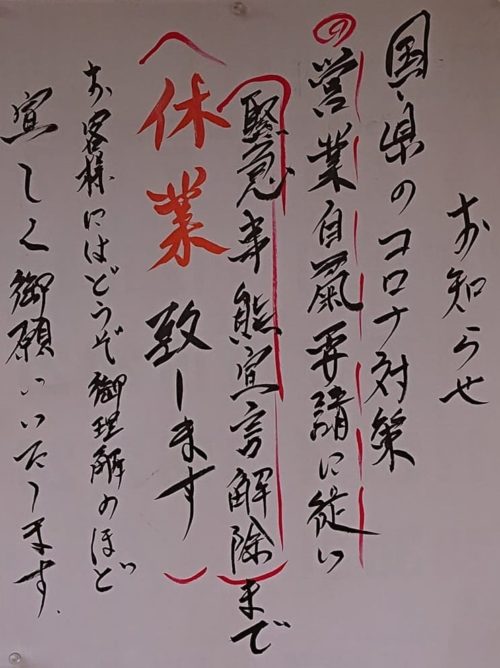 お知らせ
国・県のコロナ対策
の営業自粛要請に従い
(緊急事態宣言解除)まで
(休業致します)
お客様にはどうぞ御理解のほど
宜しく御願いいたします.